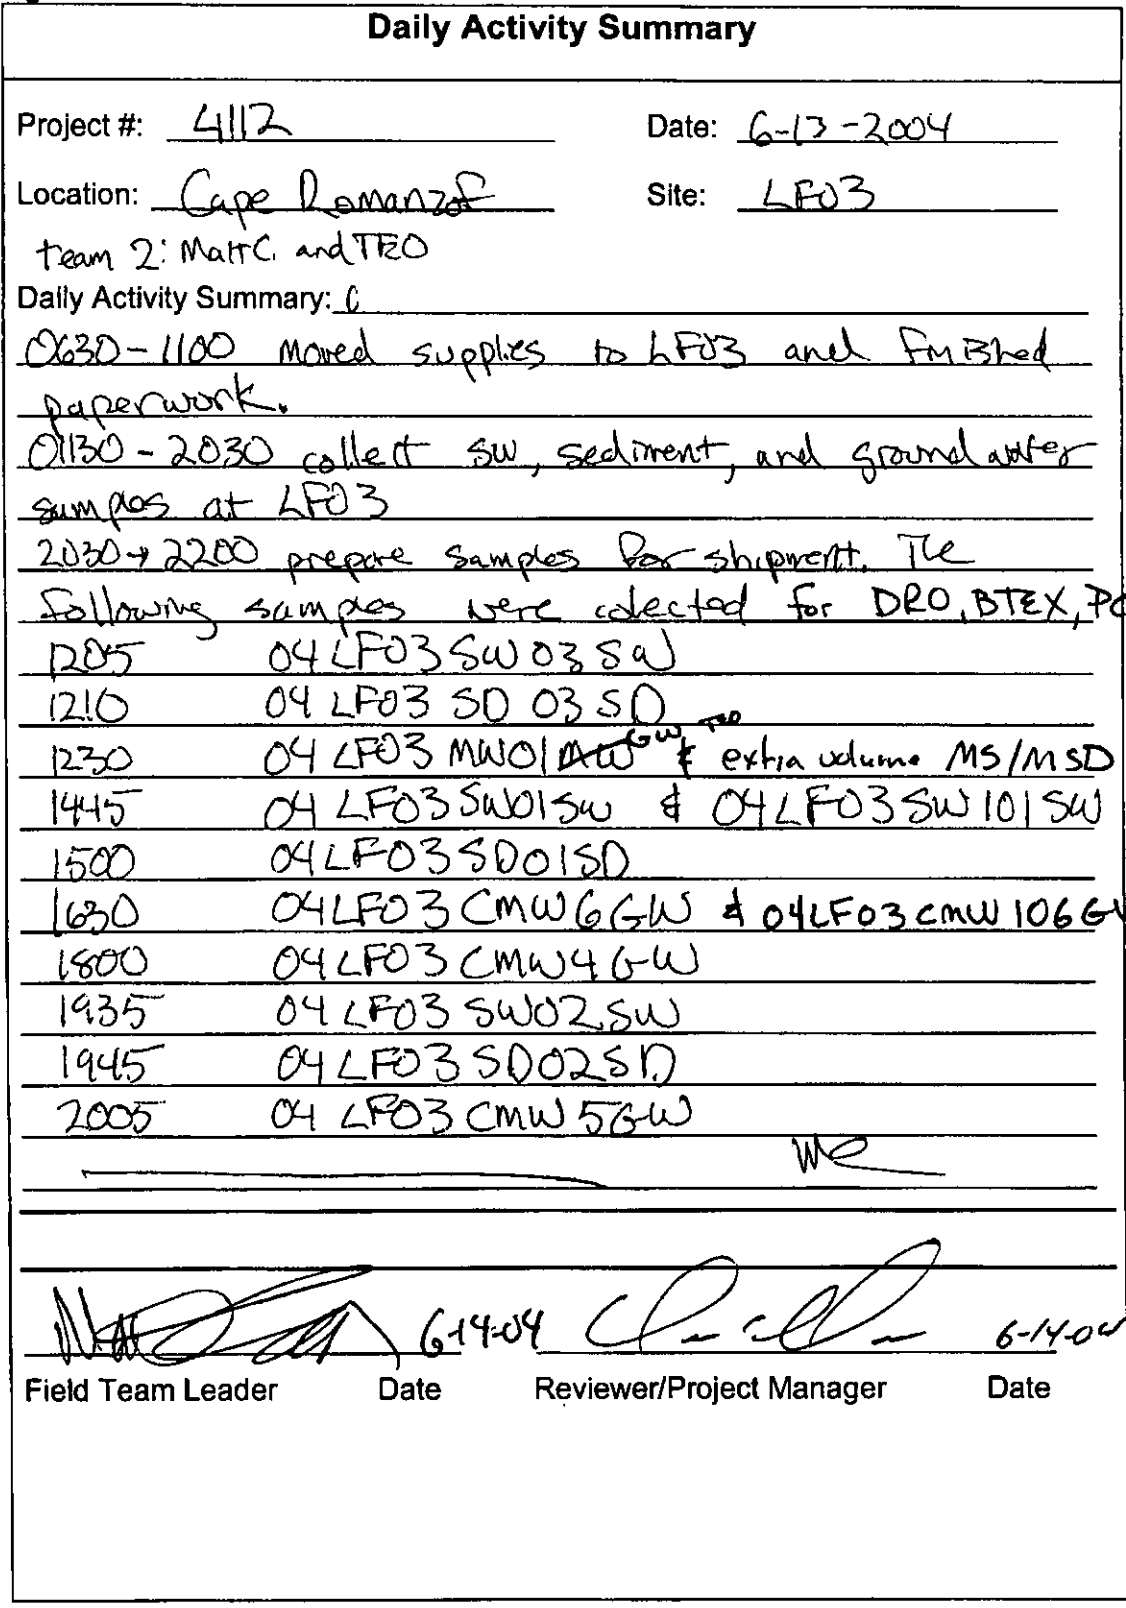 Daily Activity Summary
Project #: 4112 Date: 6-13-2004
Location: Cape Romanzof Site: LF03
team 2: Matt C. and TEO
Daily Activity Summary: C
0630-1100 moved supplies to LF03 and finished
paperwork.
01130-2030 collect sw, sediment, and groundwater
samples at LF03
2030→2200 prepare samples for shipment. The
following samples were colected for DRO, BTEX, PC
1205 04LF03SW03SW
1210 04LF03SD03SD
1230 04LF03MW01GW TEO & extra volume MS/MSD
1445 04LF03SW01SW & 04LF03SW101SW
1500 04LF03SD01SD
1630 04LF03CMW6GW & 04LF03CMW106GW
1800 04LF03CMW4GW
1935 04LF03SW02SW
1945 04LF03SD02SD
2005 04LF03CMW5GW
6-14-04 6-14-04
Field Team Leader Date Reviewer/Project Manager Date